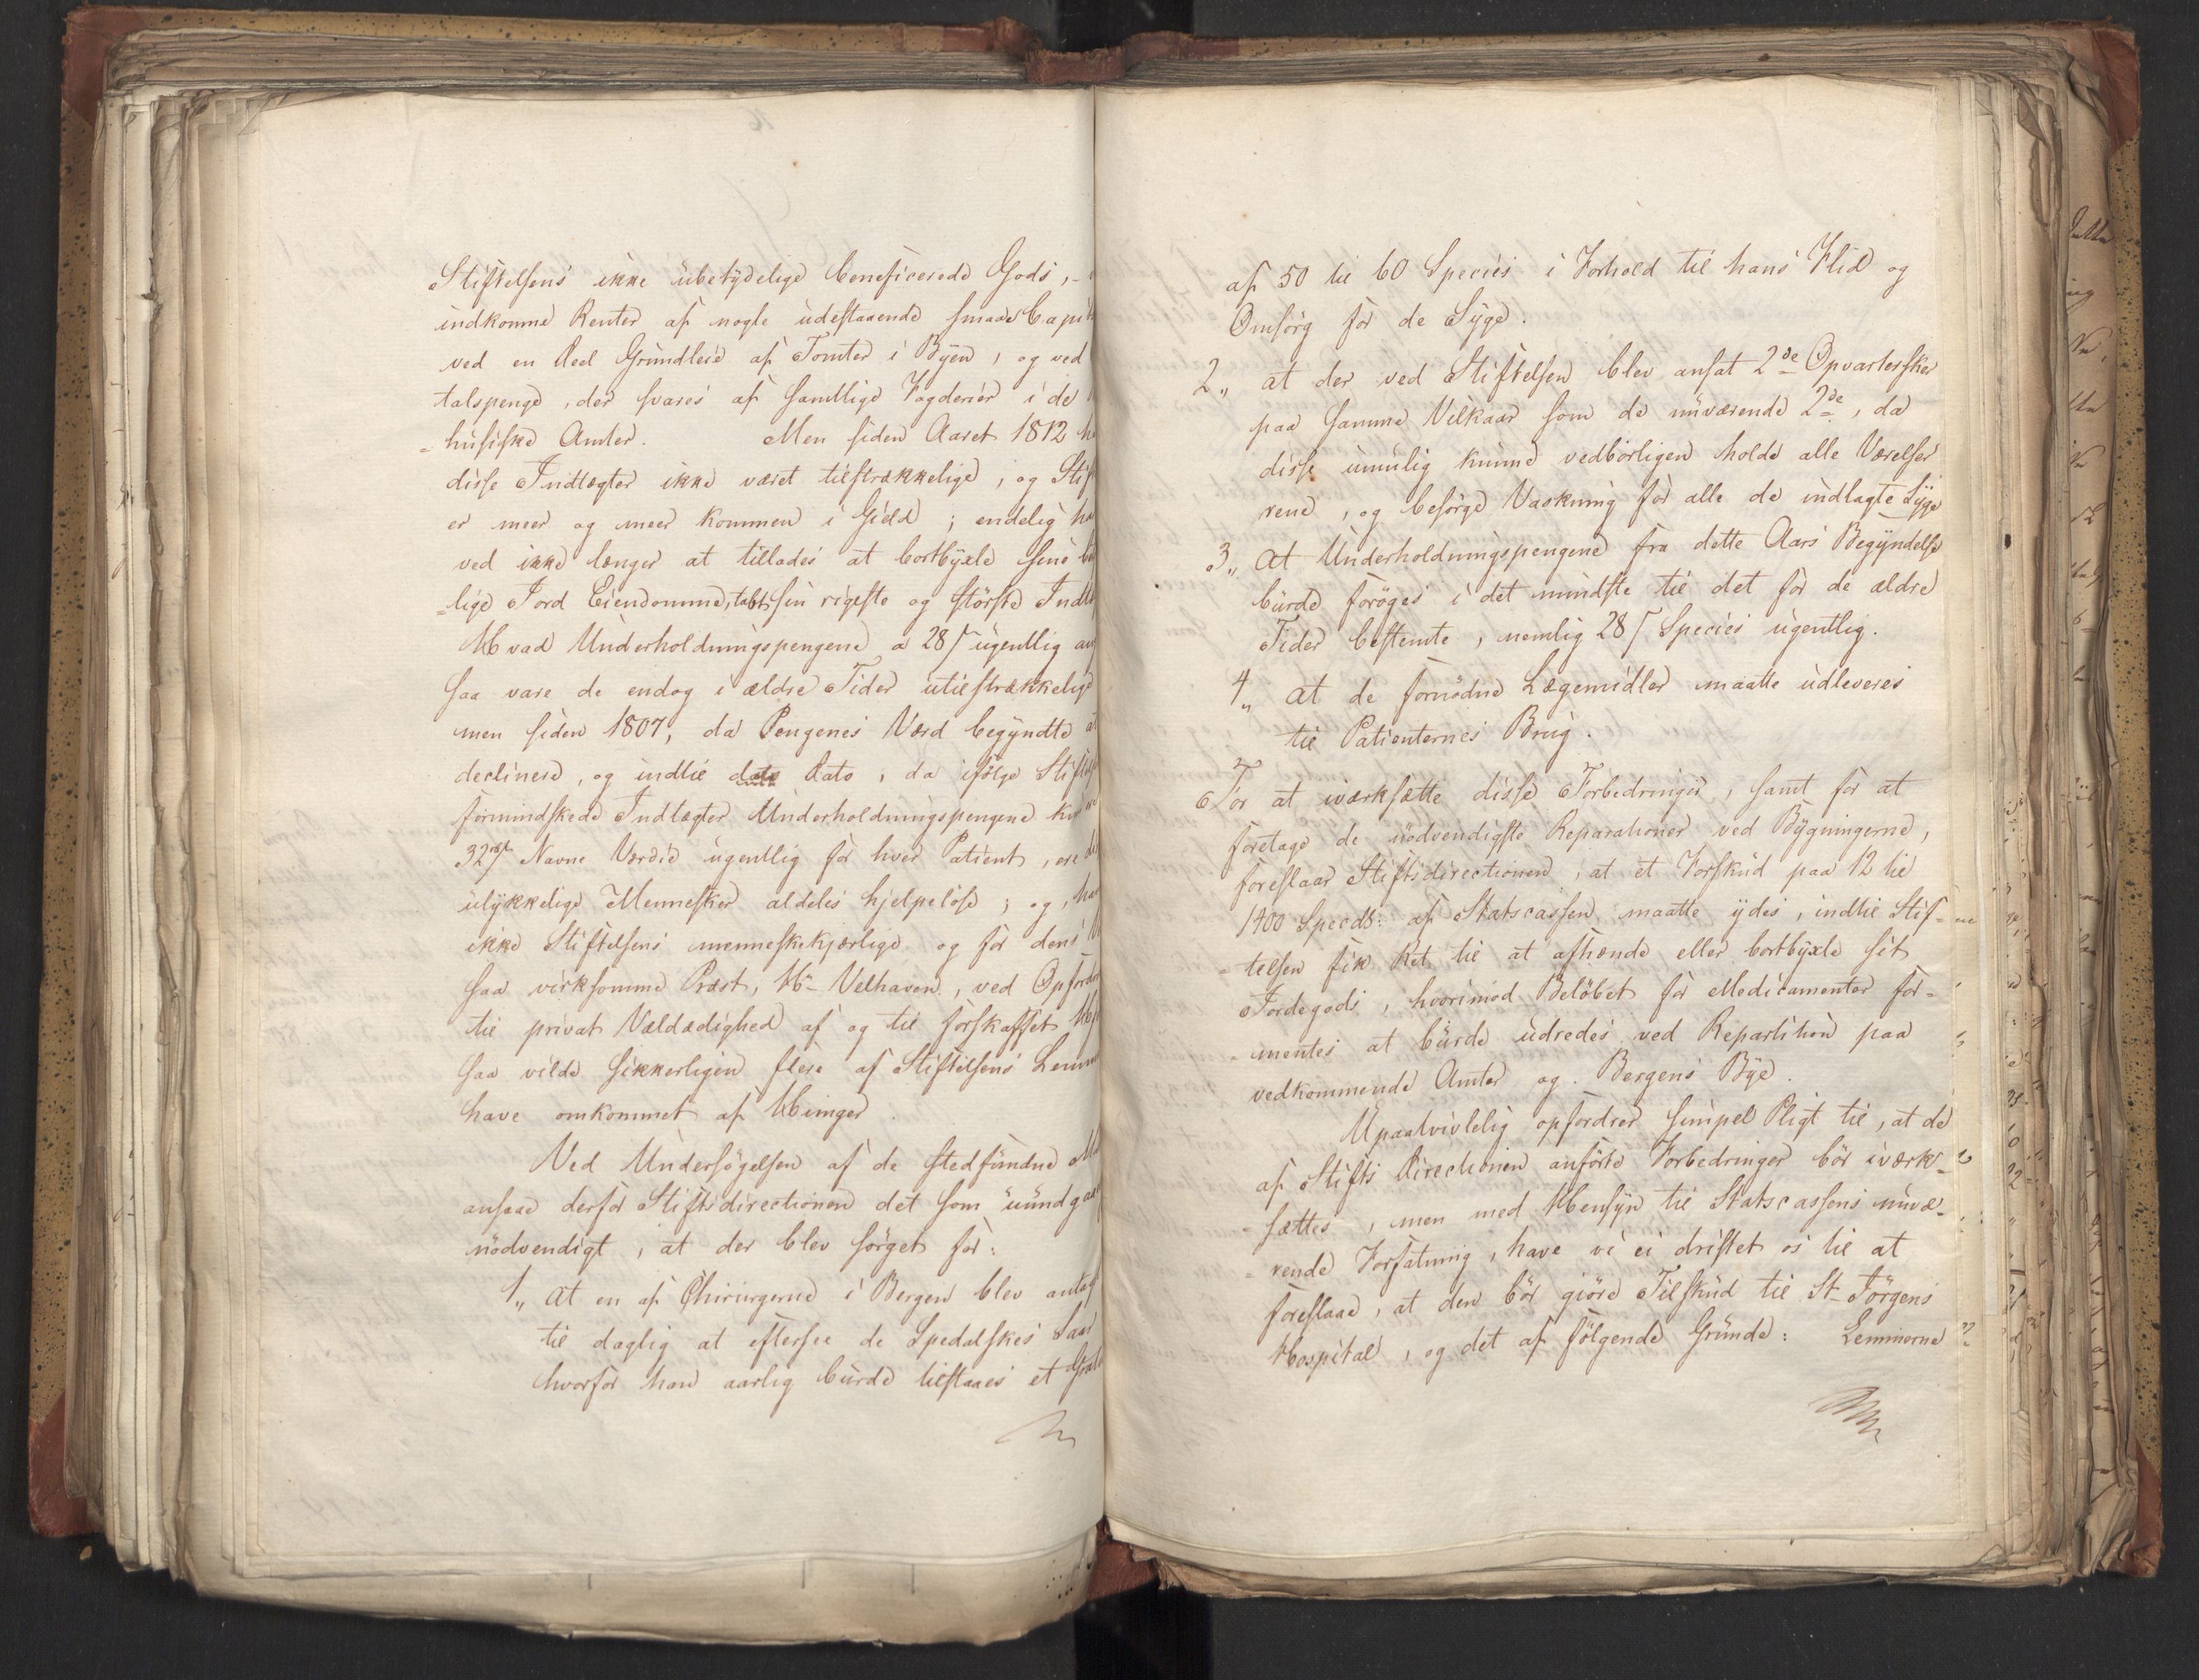 Stiftelsens ikke ubetydelige beneficerede Gods, -
indkomne Renter af nogle udestaaende smaae Capit
ved en Deel Grundleie af Tomter i Byen, og ved
talspenge, der svares af samtlige Fogderier i de
=husiske Amter. Men siden Aaret 1812 h
disse Indtægter ikke været tilstrækkelige, og Stif
er meer og meer kommen i Gield; endelig ha
ved ikke længer at tillades at bortbyxle sine be
=lige Jord Eiendomme, tabt sin vigtigste og største Indt
Hvad Underholdningspengene a 28 s ugentlig an
saa vare de endog i ældre Tider utilstrækkelige
men siden 1807, da Pengenes Værd begyndte at
declinere, og indtil dato, da ifølge Stiftels
formindskede Indtægter Underholdningspengene kun
32 s Navne Værdie ugentlig for hver Patient, ere di
ulykkelige Mennesker aldeles hjelpeløse; og, hav
ikke Stiftelsens menneskekjærlige og for dens
saa virksomme Præst, Hr Velhaven, ved Opfordr
til privat Vældædighed af og til forskaffet Hj
saa vilde sikkerligen flere af Stiftelsens Lemm
have omkommet af Hunger.
Ved Undersøgelsen af de stedfundne M
ansaae derfor Stiftsdirectionen det som uundgaae
nødvendigt, at der blev sørget for:
1„ at en af Chirurgerne i Bergen blev antag
til daglig at eftersee de Spedalskes Saar
hvorfor han aarlig burde tilstaaes et Grat
af 50 til 60 Species i Forhold til hans Flid og
Omsorg for de Syge.
2„ at der ved Stiftelsen blev ansat 2de Opvartersker
paa samme Vilkaar som de nuværende 2de, da
disse umulig kunne vedbørligen holde alle Værelser
rene, og besørge Vaskning for alle de indlagte Syge
3„ at Underholdningspengene fra dette Aars Begyndelse
burde forøges i det mindste til det for de ældre
Tider bestemte, nemlig 28 s Species ugentlig.
4„ at de fornødne Lægemidler maatte udleveres
til Patienternes Brug.
For at iværksætte disse Forbedringer, samt for at
foretage de nødvendigste Reparationer ved Bygningerne,
foreslaar Stiftsdirectionen, at et Forskud paa 12 til
1400 Specdlr: af Statscassen maatte ydes, indtil Stif=
=telsen fik Ret til at afhænde eller bortbyxle sit
Jordegods, hvorimod Beløbet for Medicamenter for=
=mentes at burde udredes ved Repartition paa
vedkommende Amter og Bergens Bye.
Upaatvivlelig opfordrer simpel Pligt til, at de
af Stifts Directionen anførte Forbedringer bør iværk=
=sættes, men med Hensyn til Statscassens nuvæ=
=rende Forfatning, have vi ei dristet os til at
foreslaae, at den bør giøre Tilskud til St Jørgens
Hospital, og det af følgende Grunde: Lemmerne